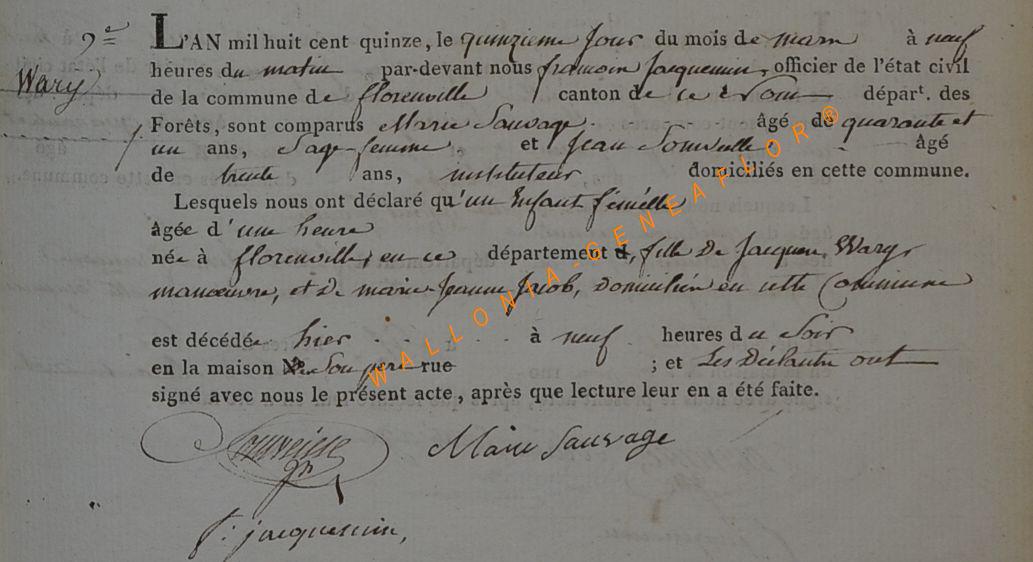 9e
Wary
L'AN mil huit cent quinze, le quinzieme jour du mois de mars à neuf
heures du matin par-devant nous francois Jacquemin, officier de l'état civil
de la commune de florenville canton de ce nom départ. des
Forêts, sont comparus Marie Sauvage âgé de quarante et
un ans, Sage-femme et Jean âgé
de trente ans, instituteur domiciliés en cette commune.
Lesquels nous ont déclaré qu'un Enfant fémélle
âgée d'une heure
née à florenville, en ce département, fille de Jacques Wary
manœuvre, et de marie-Jeanne Jacob, domiciliés en cette Commune
est décédée hier à neuf heures du Soir
en la maison de Son pere rue ; et Les Déclants ont
signé avec nous le présent acte, après que lecture leur en a été faite.
Marie Sauvage
f: jacquemin,
WALLONIA-GENEAFLOR®